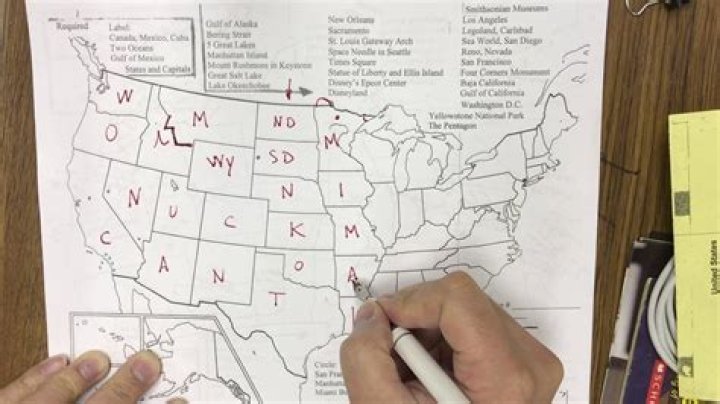 Required
Label:
Canada, Mexico, Cuba
Two Oceans
Gulf of Mexico
States and Capitals
Gulf of Alaska
Bering Strait
5 Great Lakes
Manhattan Island
Mount Rushmore in Keystone
Great Salt Lake
Lake Okeechobee
New Orleans
Sacramento
St. Louis Gateway Arch
Space Needle in Seattle
Times Square
Statue of Liberty and Ellis Island
Disney's Epcot Center
Disneyland
Smithsonian Museums
Los Angeles
Legoland, Carlsbad
Sea World, San Diego
Reno, Nevada
San Francisco
Four Corners Monument
Baja California
Gulf of California
Washington D.C.
Yellowstone National Park
The Pentagon
W
M
ND
O
M
WY
SD
N
N
I
U
C
K
M
C
A
N
O
A
T
Circle:
United States